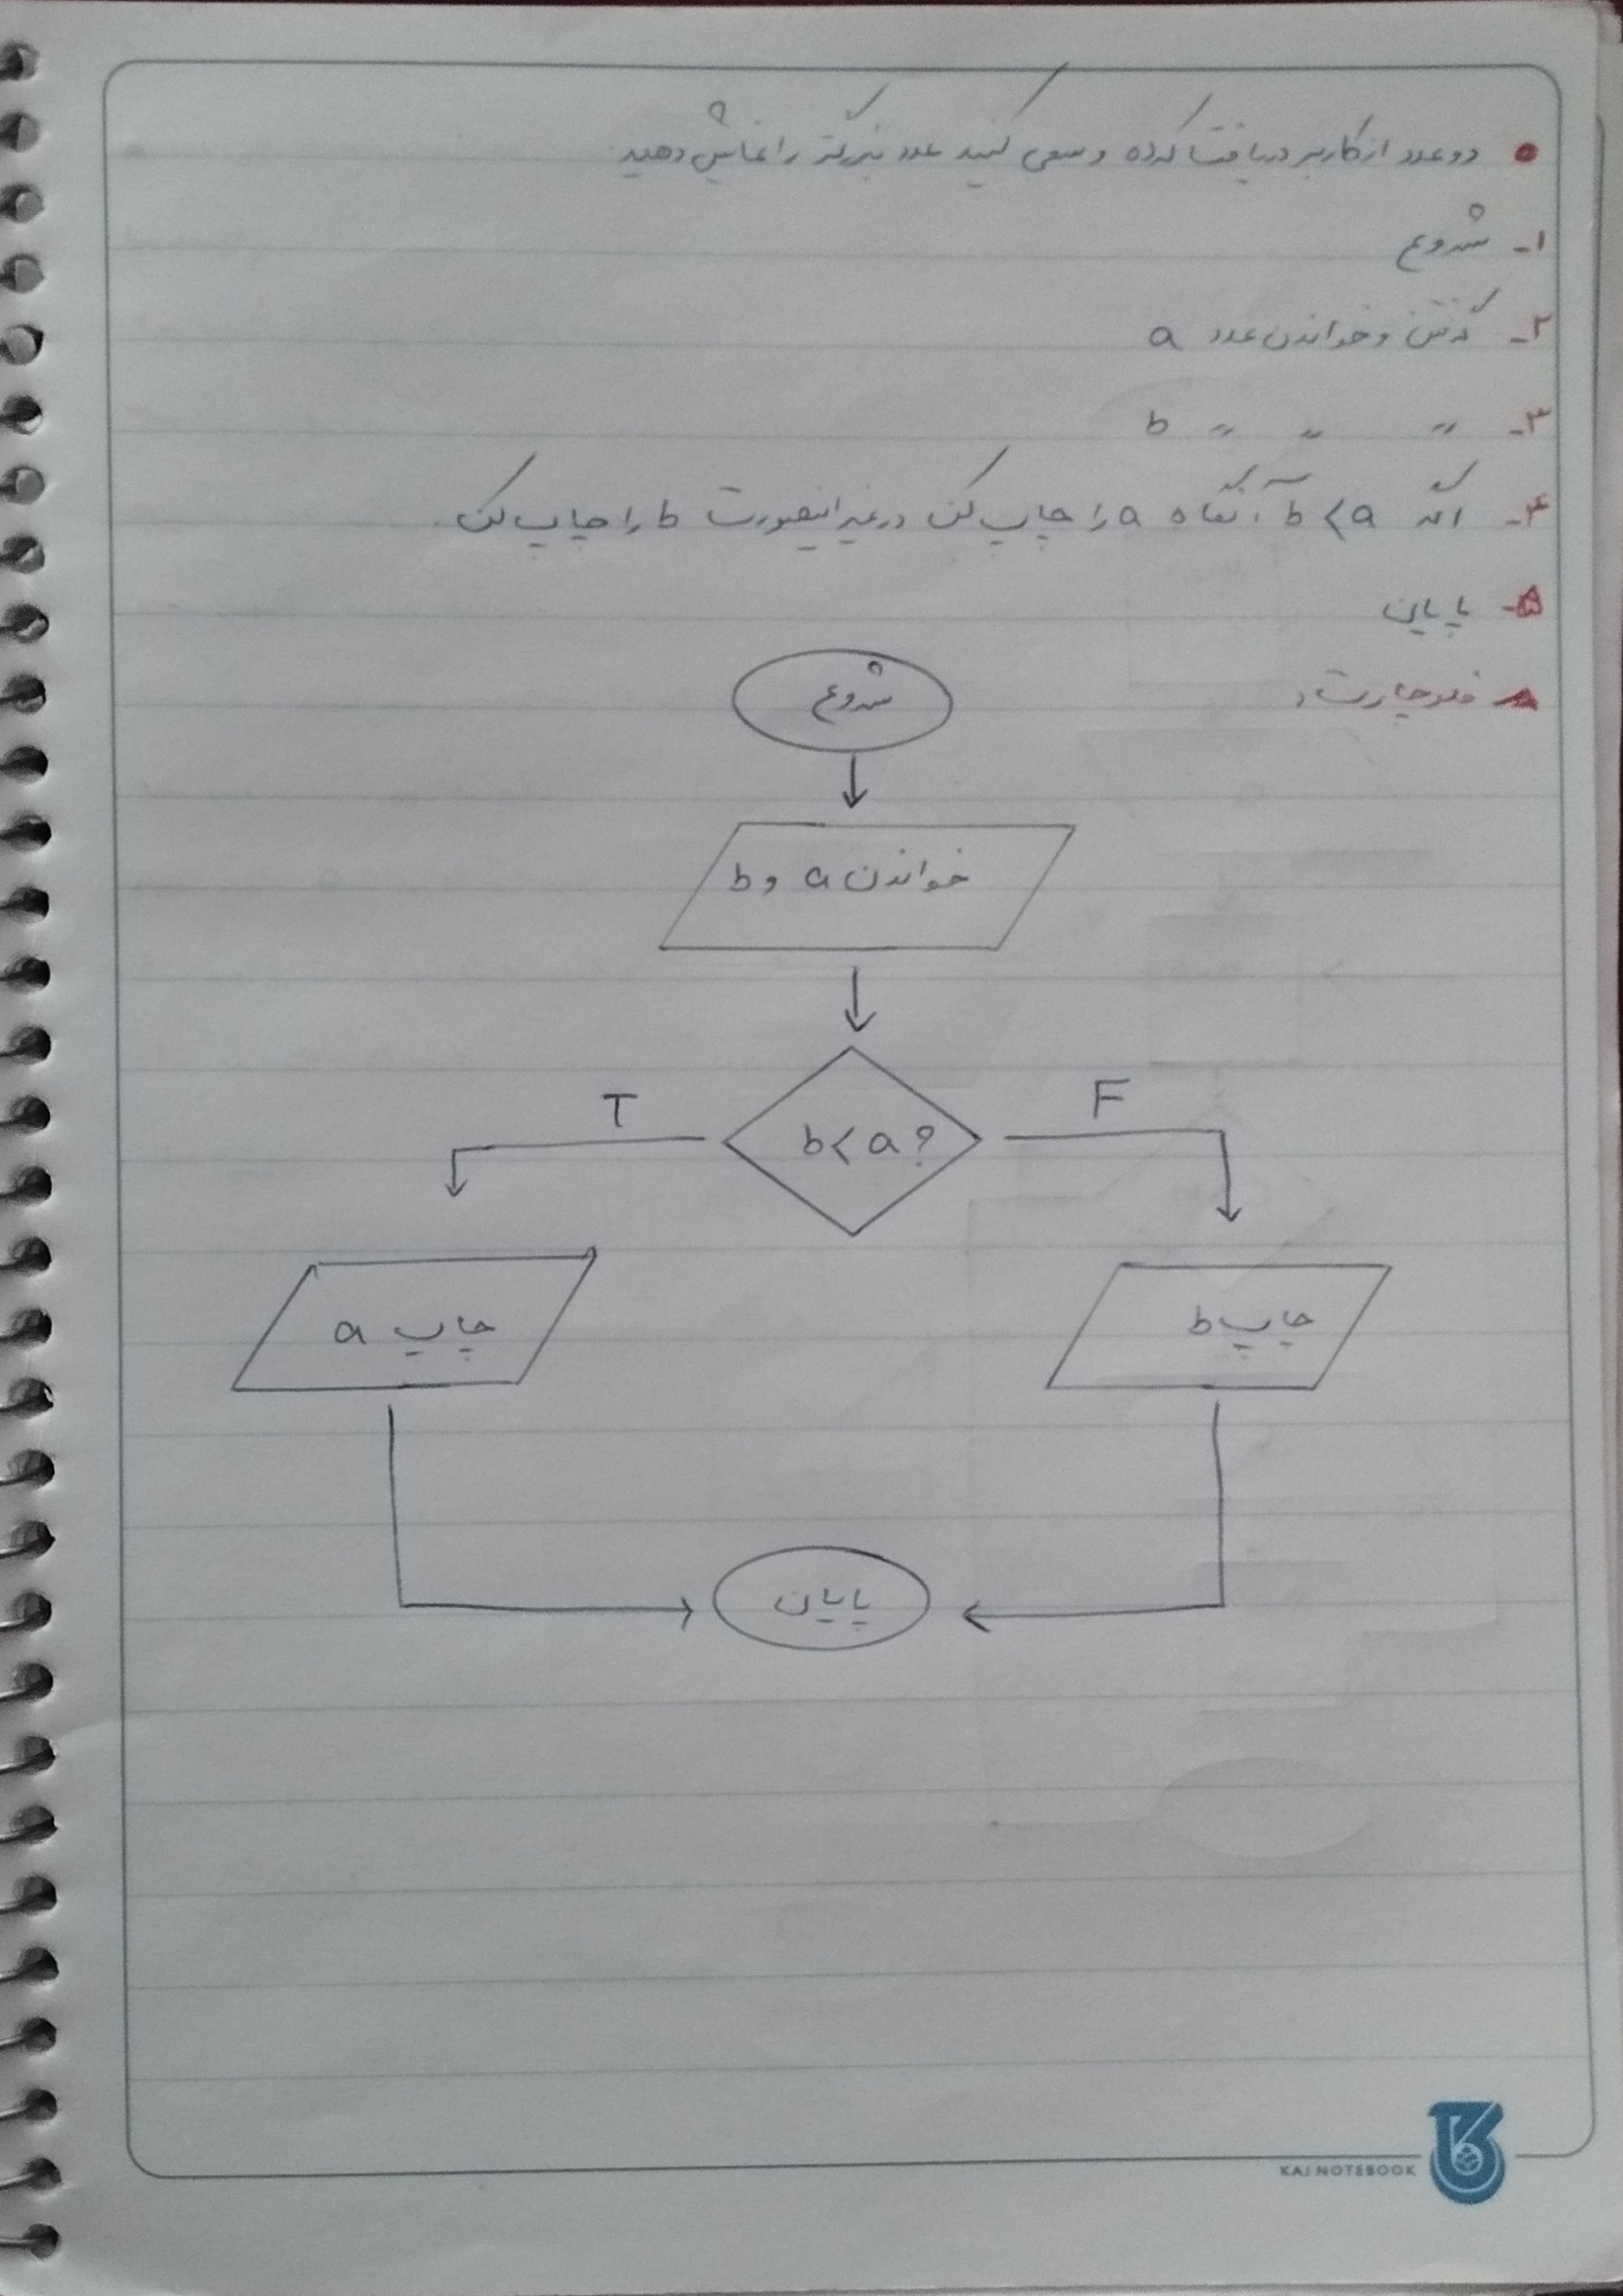 دو عدد از کاربر دریافت کرده و سعی کنید عدد بزرگتر را نمایش دهید.
۱- شروع
۲- گرفتن و خواندن عدد a
۳- 〃 〃 〃 b
۴- اگر b < a آنگاه a را چاپ کن در غیر اینصورت b را چاپ کن.
۵- پایان
فلوچارت:
شروع
خواندن a و b
T
F
b < a ?
چاپ a
چاپ b
پایان
KAJ NOTEBOOK